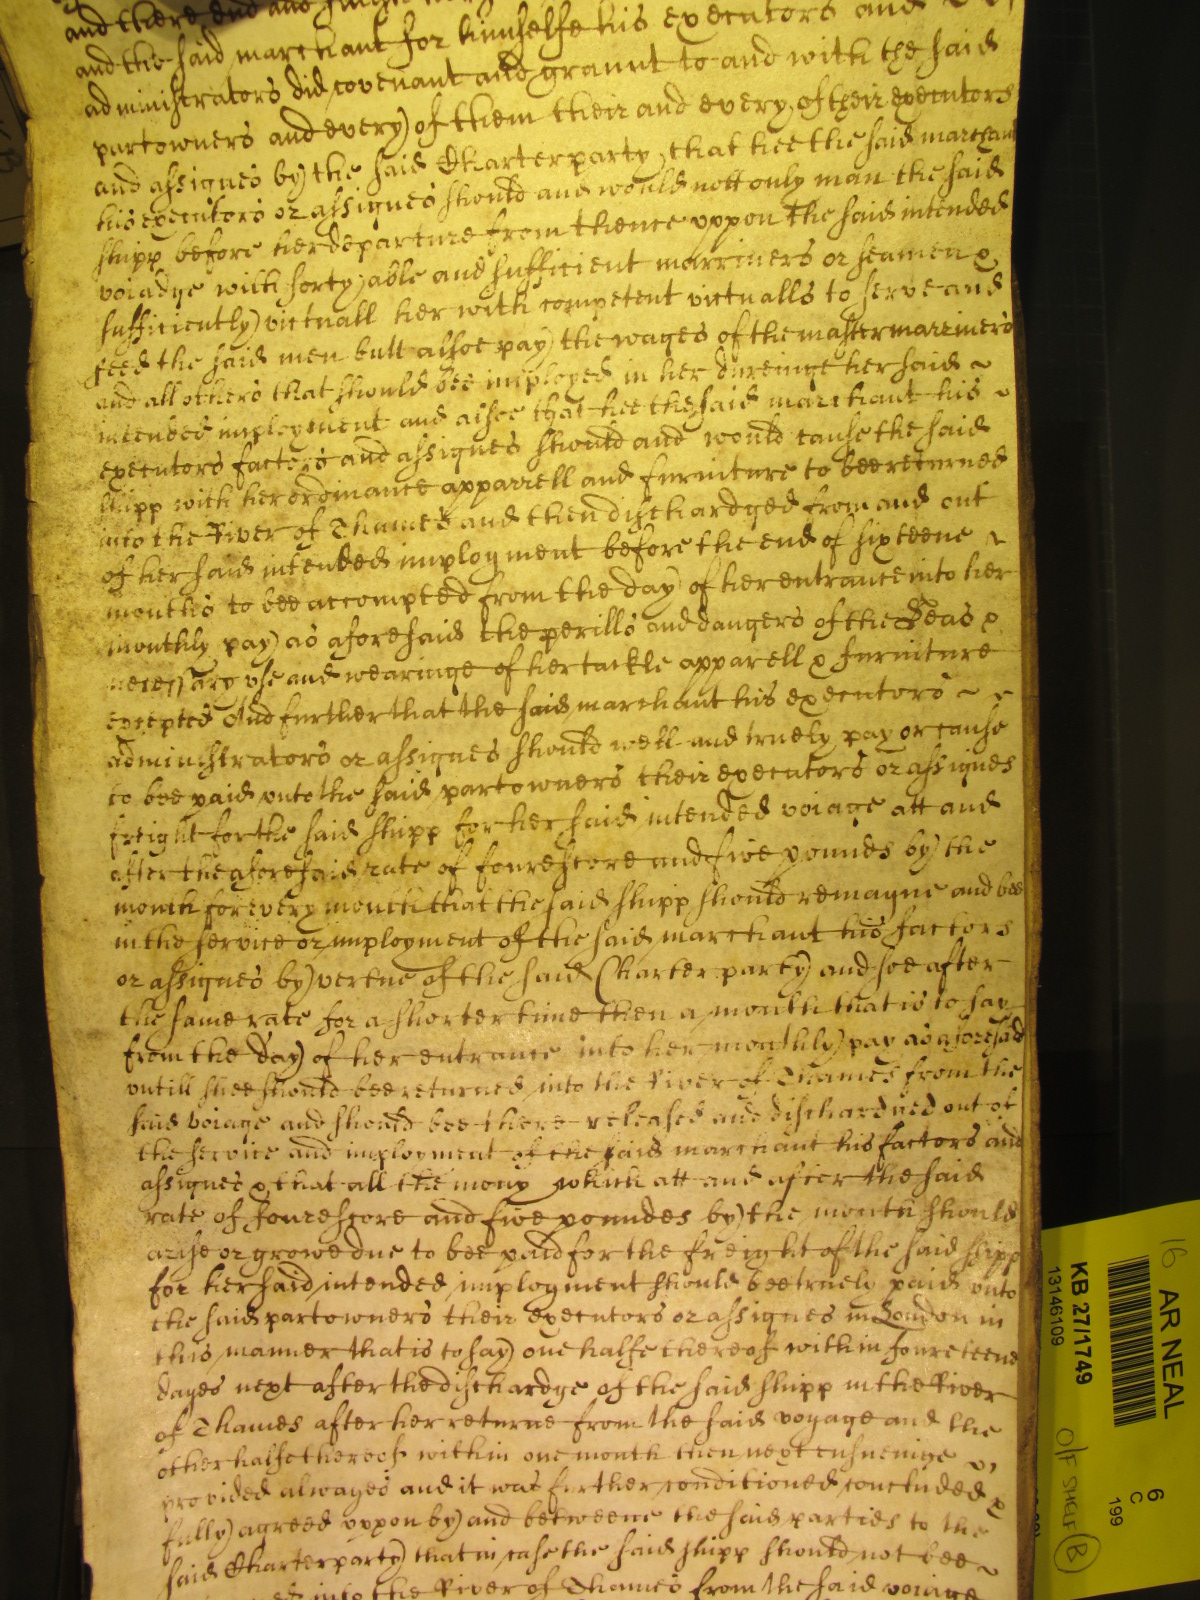 and there end and
and the said marchant for himselfe his executors and
administrators did covenant and graunt to and with the said
partowners and every of them their and every of their executors
and assignes by the said Charterparty that hee the said marchant
his executors or assignes should and would nott only man the said
shipp before her departure from thence uppon the said intended
voiadge with forty able and sufficient marriners or seamen &
sufficiently victuall her with competent victualls to serve and
feed the said men butt alsoe pay the wages of the master marriners
and all others that should bee imployed in her dureinge her said
intended imployment and alsoe that hee the said marchant his
executors factors and assignes should and would cause the said
shipp with her ordinance apparrell and furniture to bee returned
into the River of Thames and then dischardged from and out
of her said intended imployment before the end of sixteene
monthes to bee accompted from the day of her entrance into her
monthly pay as aforesaid the perills and dangers of the Seas &
necessary use and wearinge of her tackle apparell & furniture
excepted And further that the said marchant his executors
administrators or assignes should well and truely pay or cause
to bee paid unto the said partowners their executors or assignes
freight for the said shipp for her said intended voiage att and
after the aforesaid rate of fourescore and five pounds by the
month for every month that the said shipp should remayne and bee
in the service or imployment of the said marchant his factors
or assignes by vertue of the said Charter party and soe after
the same rate for a shorter time then a month that is to say
from the day of her entrance into her monthly pay as aforesaid
untill shee should bee returned into the River of Thames from the
said voiage and should bee there released and dischardged out of
the service and imployment of the said marchant his factors and
assignes & that all the mony which att and after the said
rate of fourescore and five poundes by the month should
arise or growe due to bee paid for the freight of the said shipp
for her said intended imployment should bee truely paid unto
the said partowners their executors or assignes in London in
this manner that is to say one halfe thereof within foureteene
dayes next after the dischardge of the said shipp in the River
of Thames after her returne from the said voyage and the
other halfe thereof within one month then next ensueinge
provided alwayes and it was further conditioned concluded &
fully agreed uppon by and betweene the said parties to the
said Charterparty that in case the said shipp should not bee
into the River of Thames from the said voiage
16 AR NEAL
6
C
199
KB 27/1749
13146109
O/F SHELF B